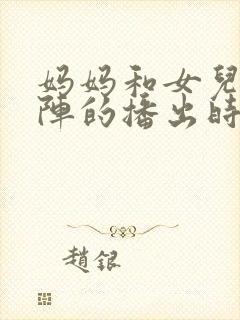 妈妈和女兒
陣的播出時
趙銀